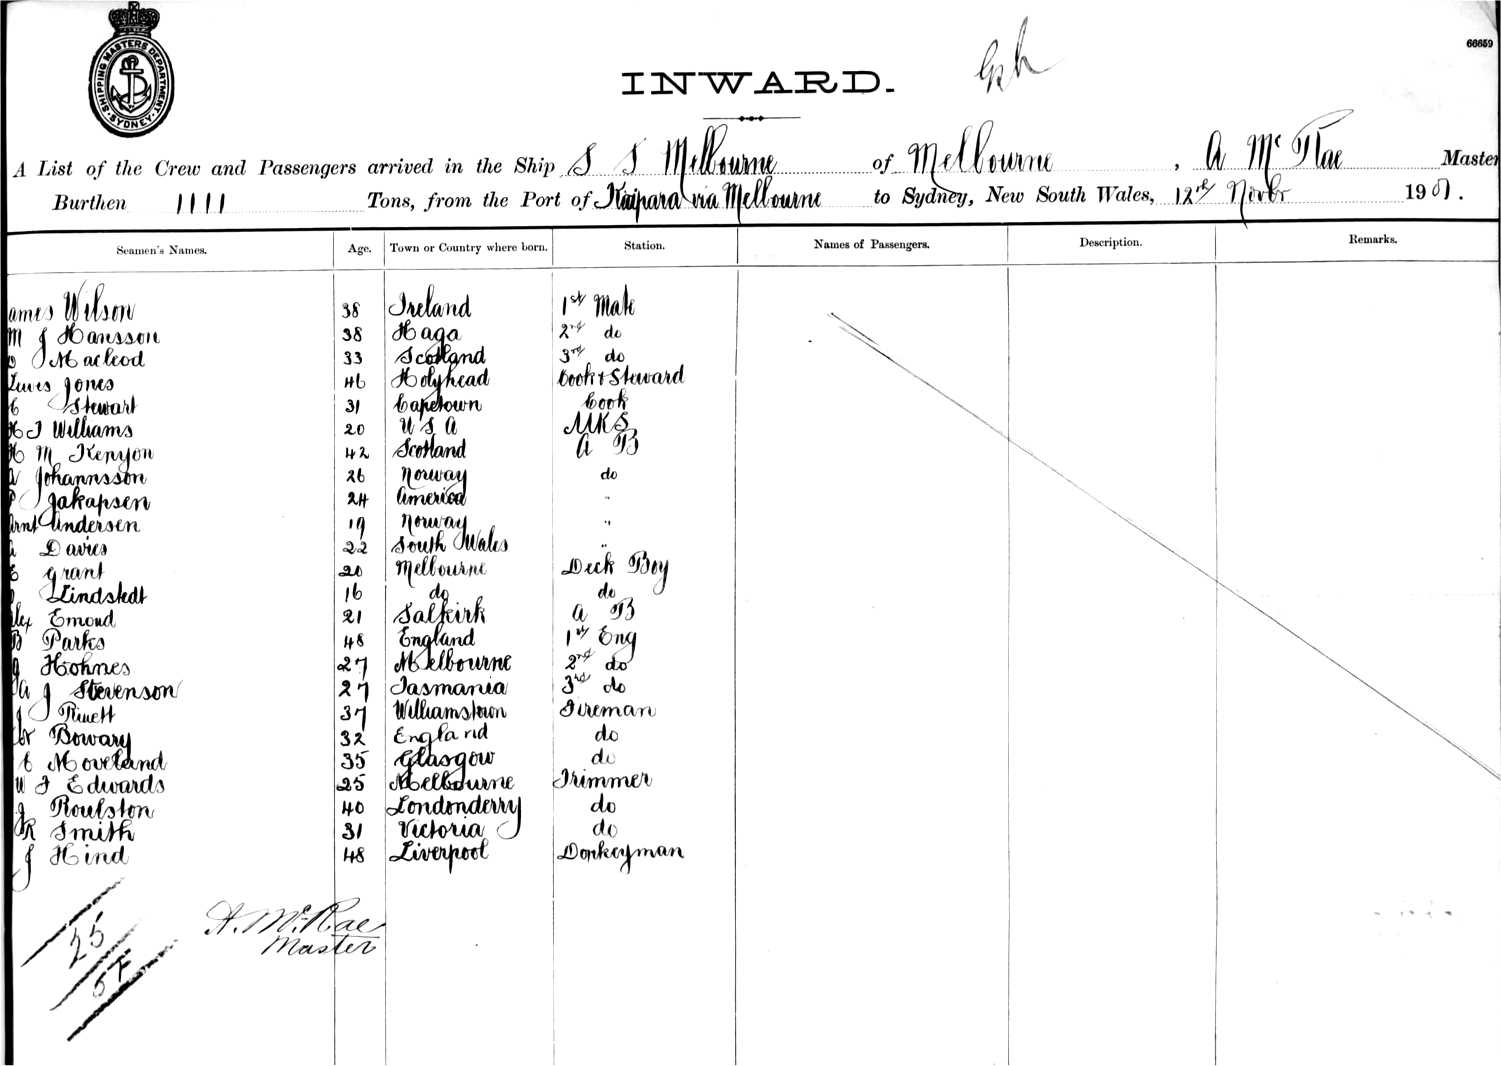 SHIPPING MASTERS DEPARTMENT. SYDNEY.
66659
INWARD.
A List of the Crew and Passengers arrived in the Ship S S Melbourne of Melbourne, A Mc Rae Master
Burthen 1111 Tons, from the Port of Kaipara via Melbourne to Sydney, New South Wales, 12th Novbr 1901.
Seamen's Names. Age. Town or Country where born. Station. Names of Passengers. Description. Remarks.
ames Wilson 38 Ireland 1st Mate
M J Hansson 38 Haga 2nd do
Macleod 33 Scotland 3rd do
Lewis Jones 46 Holyhead Cook & Steward
C Stewart 31 Capetown Cook
H J Williams 20 U S A MKS
H M Kenyon 42 Scotland A B
A Johannsson 26 Norway do
P Jakapsen 24 America "
Arnt Andersen 19 Norway "
Davies 22 South Wales "
E Grant 20 Melbourne Deck Boy
Lindstedt 16 do do
lex Emond 21 Salkirk A B
B Parks 48 England 1st Eng
J Hohnes 27 Melbourne 2nd do
A J Stevenson 27 Tasmania 3rd do
J 37 Williamstown Fireman
Bowary 32 England do
C Moveland 35 Glasgow do
W F Edwards 25 Melbourne Trimmer
J Roulston 40 Londonderry do
R Smith 31 Victoria do
J Hind 48 Liverpool Donkeyman
25
A. McRae
Master